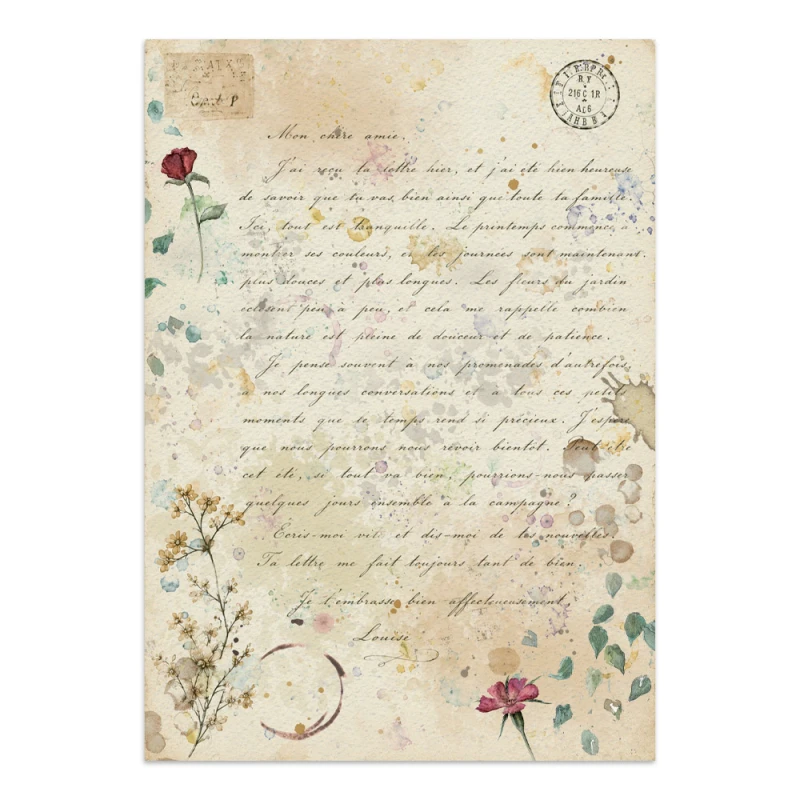 Cart P
R Y
216C 1R
Ac6
AHBB1
Mon chère amie,
J'ai reçu ta lettre hier, et j'ai été bien heureuse
de savoir que tu vas bien ainsi que toute ta famille.
Ici, tout est tranquille. Le printemps commence à
montrer ses couleurs, et les journées sont maintenant
plus douces et plus longues. Les fleurs du jardin
éclosent peu à peu, et cela me rappelle combien
la nature est pleine de douceur et de patience.
Je pense souvent à nos promenades d'autrefois,
à nos longues conversations et à tous ces petits
moments que le temps rend si précieux. J'espère
que nous pourrons nous revoir bientôt. Peut-être
cet été, si tout va bien, pourrions-nous passer
quelques jours ensemble à la campagne ?
Écris-moi vite et dis-moi de tes nouvelles.
Ta lettre me fait toujours tant de bien.
Je t'embrasse bien affectueusement,
Louise